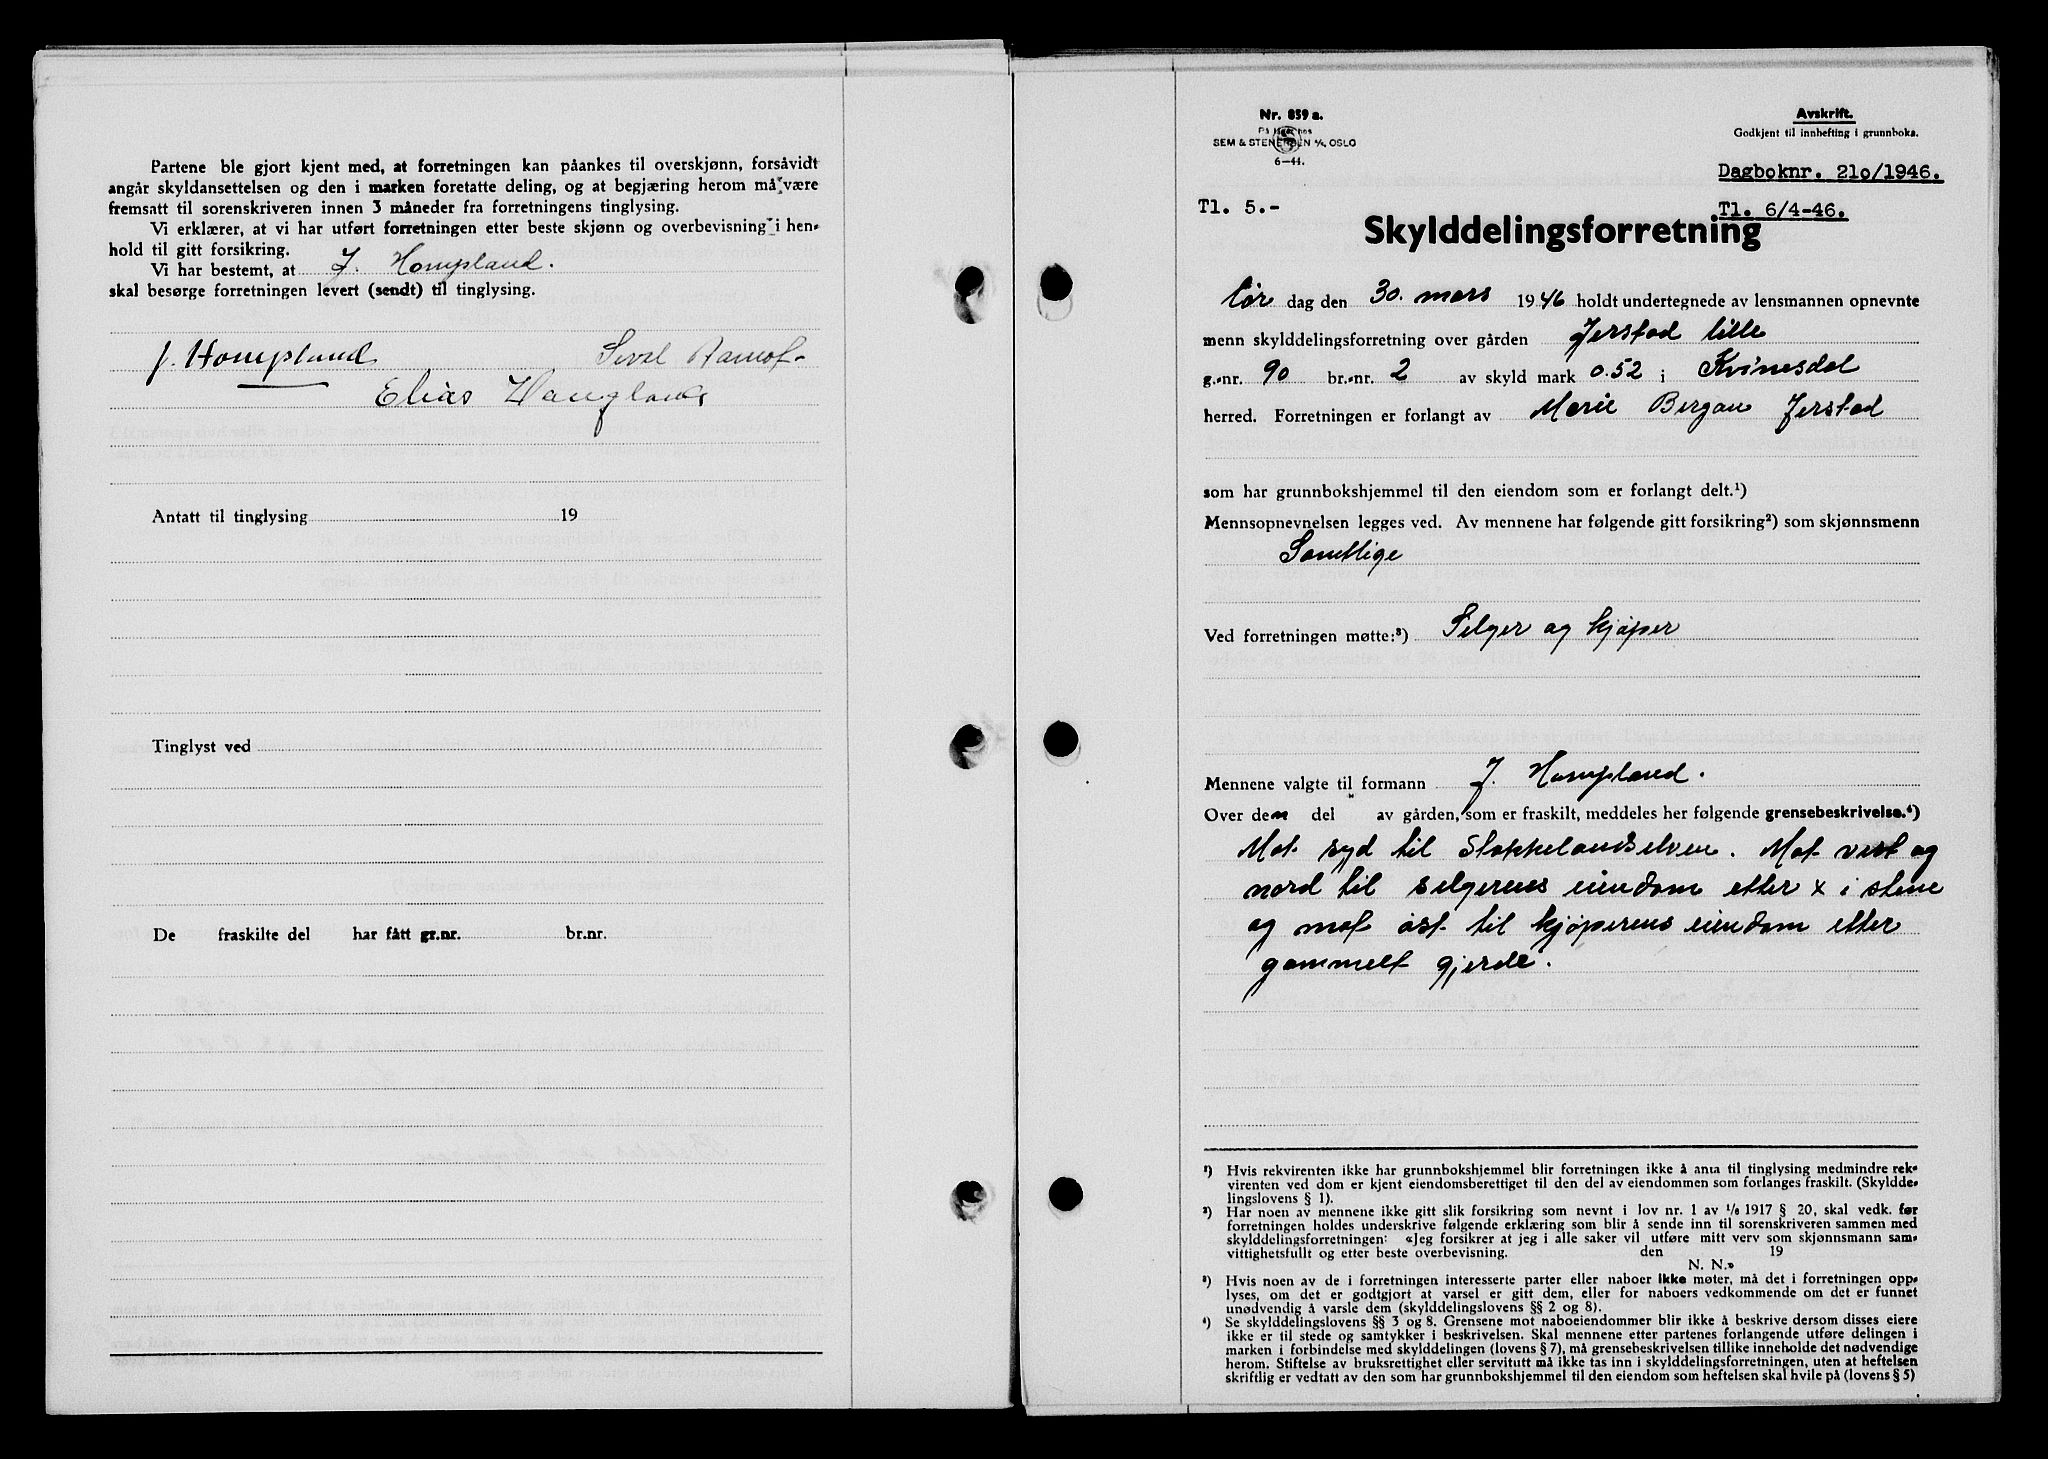 Partene ble gjort kjent med, at forretningen kan påankes til overskjønn, forsåvidt
angår skyldansettelsen og den i marken foretatte deling, og at begjæring herom må være
fremsatt til sorenskriveren innen 3 måneder fra forretningens tinglysing.
Vi erklærer, at vi har utført forretningen etter beste skjønn og overbevisning i hen-
hold til gitt forsikring.
Vi har bestemt, at J. Hompland.
skal besørge forretningen levert (sendt) til tinglysing.
J. Hompland Sivel
Elias
Antatt til tinglysing 19
Tinglyst ved
De fraskilte del har fått gr.nr. br.nr.
Nr. 859 a.
På lager hos
SEM & STENERSEN A/S, OSLO
6-44.
Avskrift.
Godkjent til innhefting i grunnboka.
Dagboknr. 210/1946.
Tl. 5.- Tl. 6/4-46.
Skylddelingsforretning
Lør dag den 30. mars 1946 holdt undertegnede av lensmannen opnevnte
menn skylddelingsforretning over gården Jerstad lille
g.-nr. 90 br.-nr. 2 av skyld mark 0.52 i Kvinesdal
herred. Forretningen er forlangt av Marie Bergan Jerstad
som har grunnbokshjemmel til den eiendom som er forlangt delt.¹)
Mennsopnevnelsen legges ved. Av mennene har følgende gitt forsikring²) som skjønnsmenn
Samtlige
Ved forretningen møtte:³) Selger og kjøper
Mennene valgte til formann J. Hompland.
Over den del av gården, som er fraskilt, meddeles her følgende grensebeskrivelse.⁴)
Mot syd til Stokkelandselven. Mot vest og
nord til selgerens eiendom etter x i stene
og mot øst til kjøperens eiendom etter
gammelt gjerde.
¹) Hvis rekvirenten ikke har grunnbokshjemmel blir forretningen ikke å anta til tinglysing medmindre rek-
virenten ved dom er kjent eiendomsberettiget til den del av eiendommen som forlanges fraskilt. (Skyldde-
lingslovens § 1).
²) Har noen av mennene ikke gitt slik forsikring som nevnt i lov nr. 1 av 1/6 1917 § 20, skal vedk. før
forretningen holdes underskrive følgende erklæring som blir å sende inn til sorenskriveren sammen med
skylddelingsforretningen: «Jeg forsikrer at jeg i alle saker vil utføre mitt verv som skjønnsmann sam-
vittighetsfullt og etter beste overbevisning. den 19
N. N.»
³) Hvis noen av de i forretningen interesserte parter eller naboer ikke møter, må det i forretningen opp-
lyses, om det er godtgjort at varsel er gitt dem, eller for naboers vedkommende om det er funnet
unødvendig å varsle dem (skylddelingslovens §§ 2 og 8).
⁴) Se skylddelingslovens §§ 3 og 8. Grensene mot naboeiendommer blir ikke å beskrive dersom disses eiere
ikke er til stede og samtykker i beskrivelsen. Skal mennene etter partenes forlangende utføre delingen i
marken i forbindelse med skylddelingen (lovens § 7), må grensebeskrivelsen tillike inneholde det nødvendige
herom. Stiftelse av bruksrettighet eller servitutt må ikke tas inn i skylddelingsforretningen, uten at heftelsen
skriftlig er vedtatt av den som har grunnbokshjemmel til den eiendom som heftelsen skal hvile på (lovens § 5)